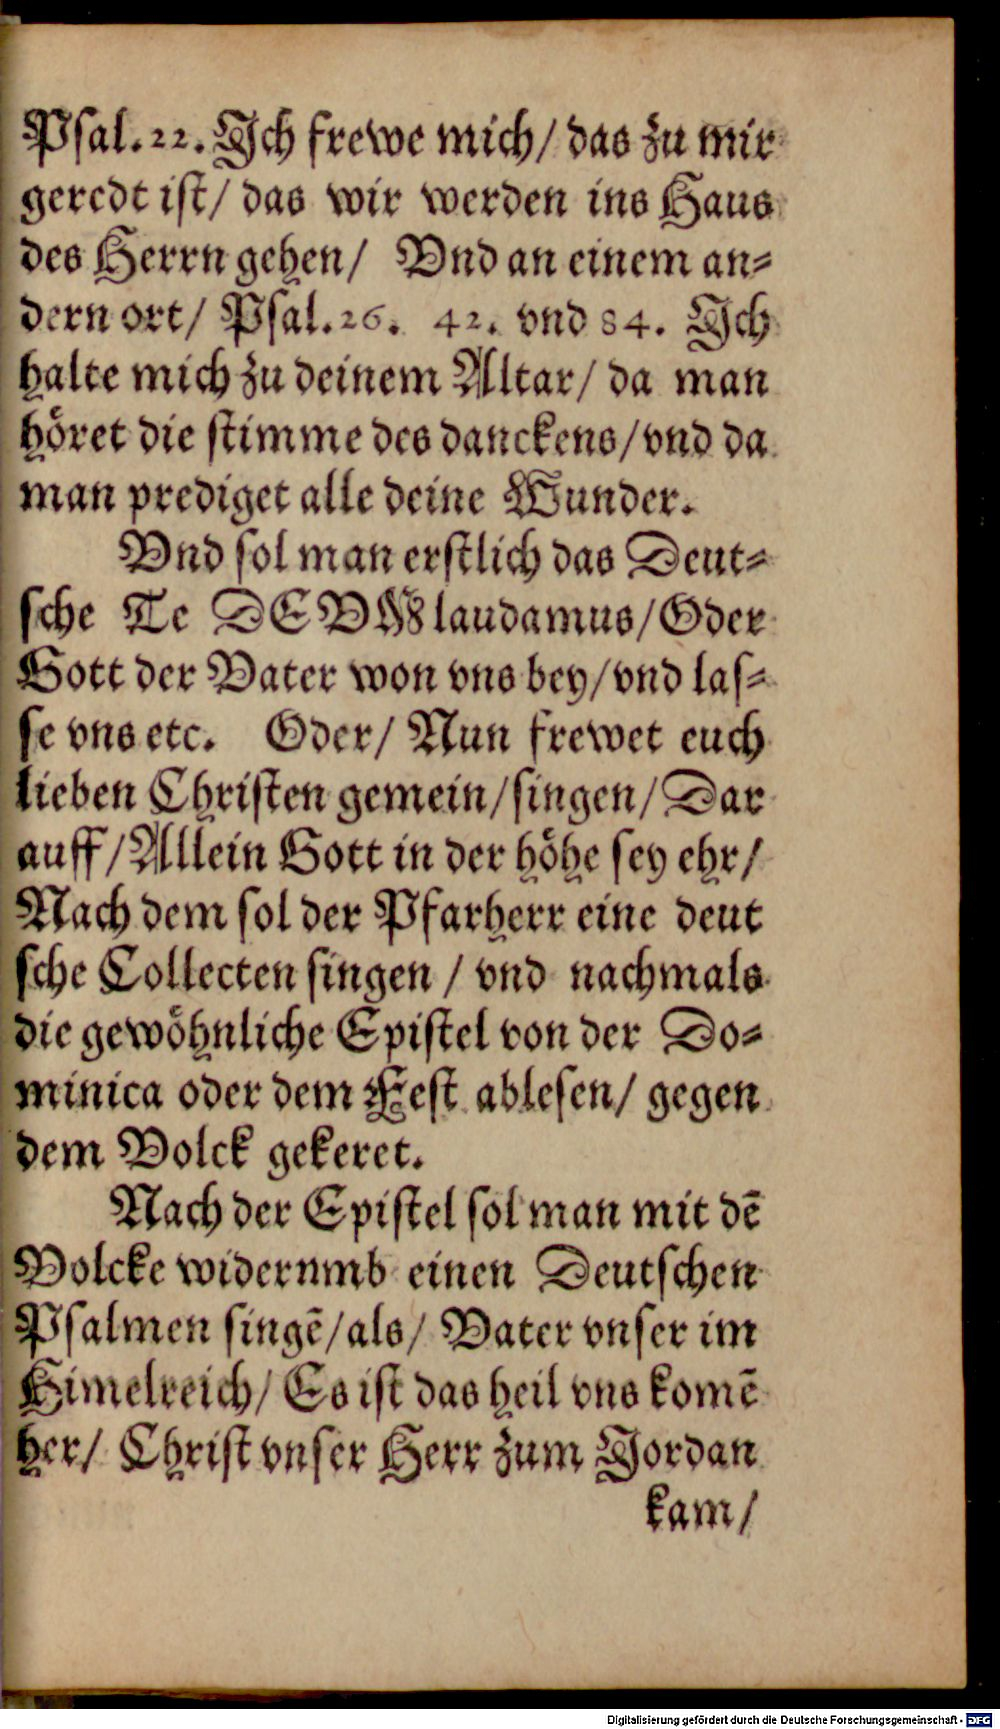 Psal. 22. Ich frewe mich/ das zu mir
geredt ist/ das wir werden ins Haus
des Herrn gehen/ Vnd an einem an-
dern ort/ Psal. 26. 42. vnd 84. Ich
halte mich zu deinem Altar/ da man
höret die stimme des danckens/ vnd da
man prediget alle deine Wunder.
Vnd sol man erstlich das Deut-
sche Te DEVM laudamus/ Oder
Gott der Vater won vns bey/ vnd las-
se vns etc. Oder/ Nun frewet euch
lieben Christen gemein/ singen/ Dar
auff/ Allein Gott in der höhe sey ehr/
Nach dem sol der Pfarherr eine deut
sche Collecten singen / vnd nachmals
die gewöhnliche Epistel von der Do-
minica oder dem Fest ablesen/ gegen
dem Volck gekeret.
Nach der Epistel sol man mit dē
Volcke widernmb einen Deutschen
Psalmen singē/ als/ Vater vnser im
Himelreich/ Es ist das heil vns komē
her/ Christ vnser Herr zum Jordan
kam/
Digitalisierung gefördert durch die Deutsche Forschungsgemeinschaft - DFG